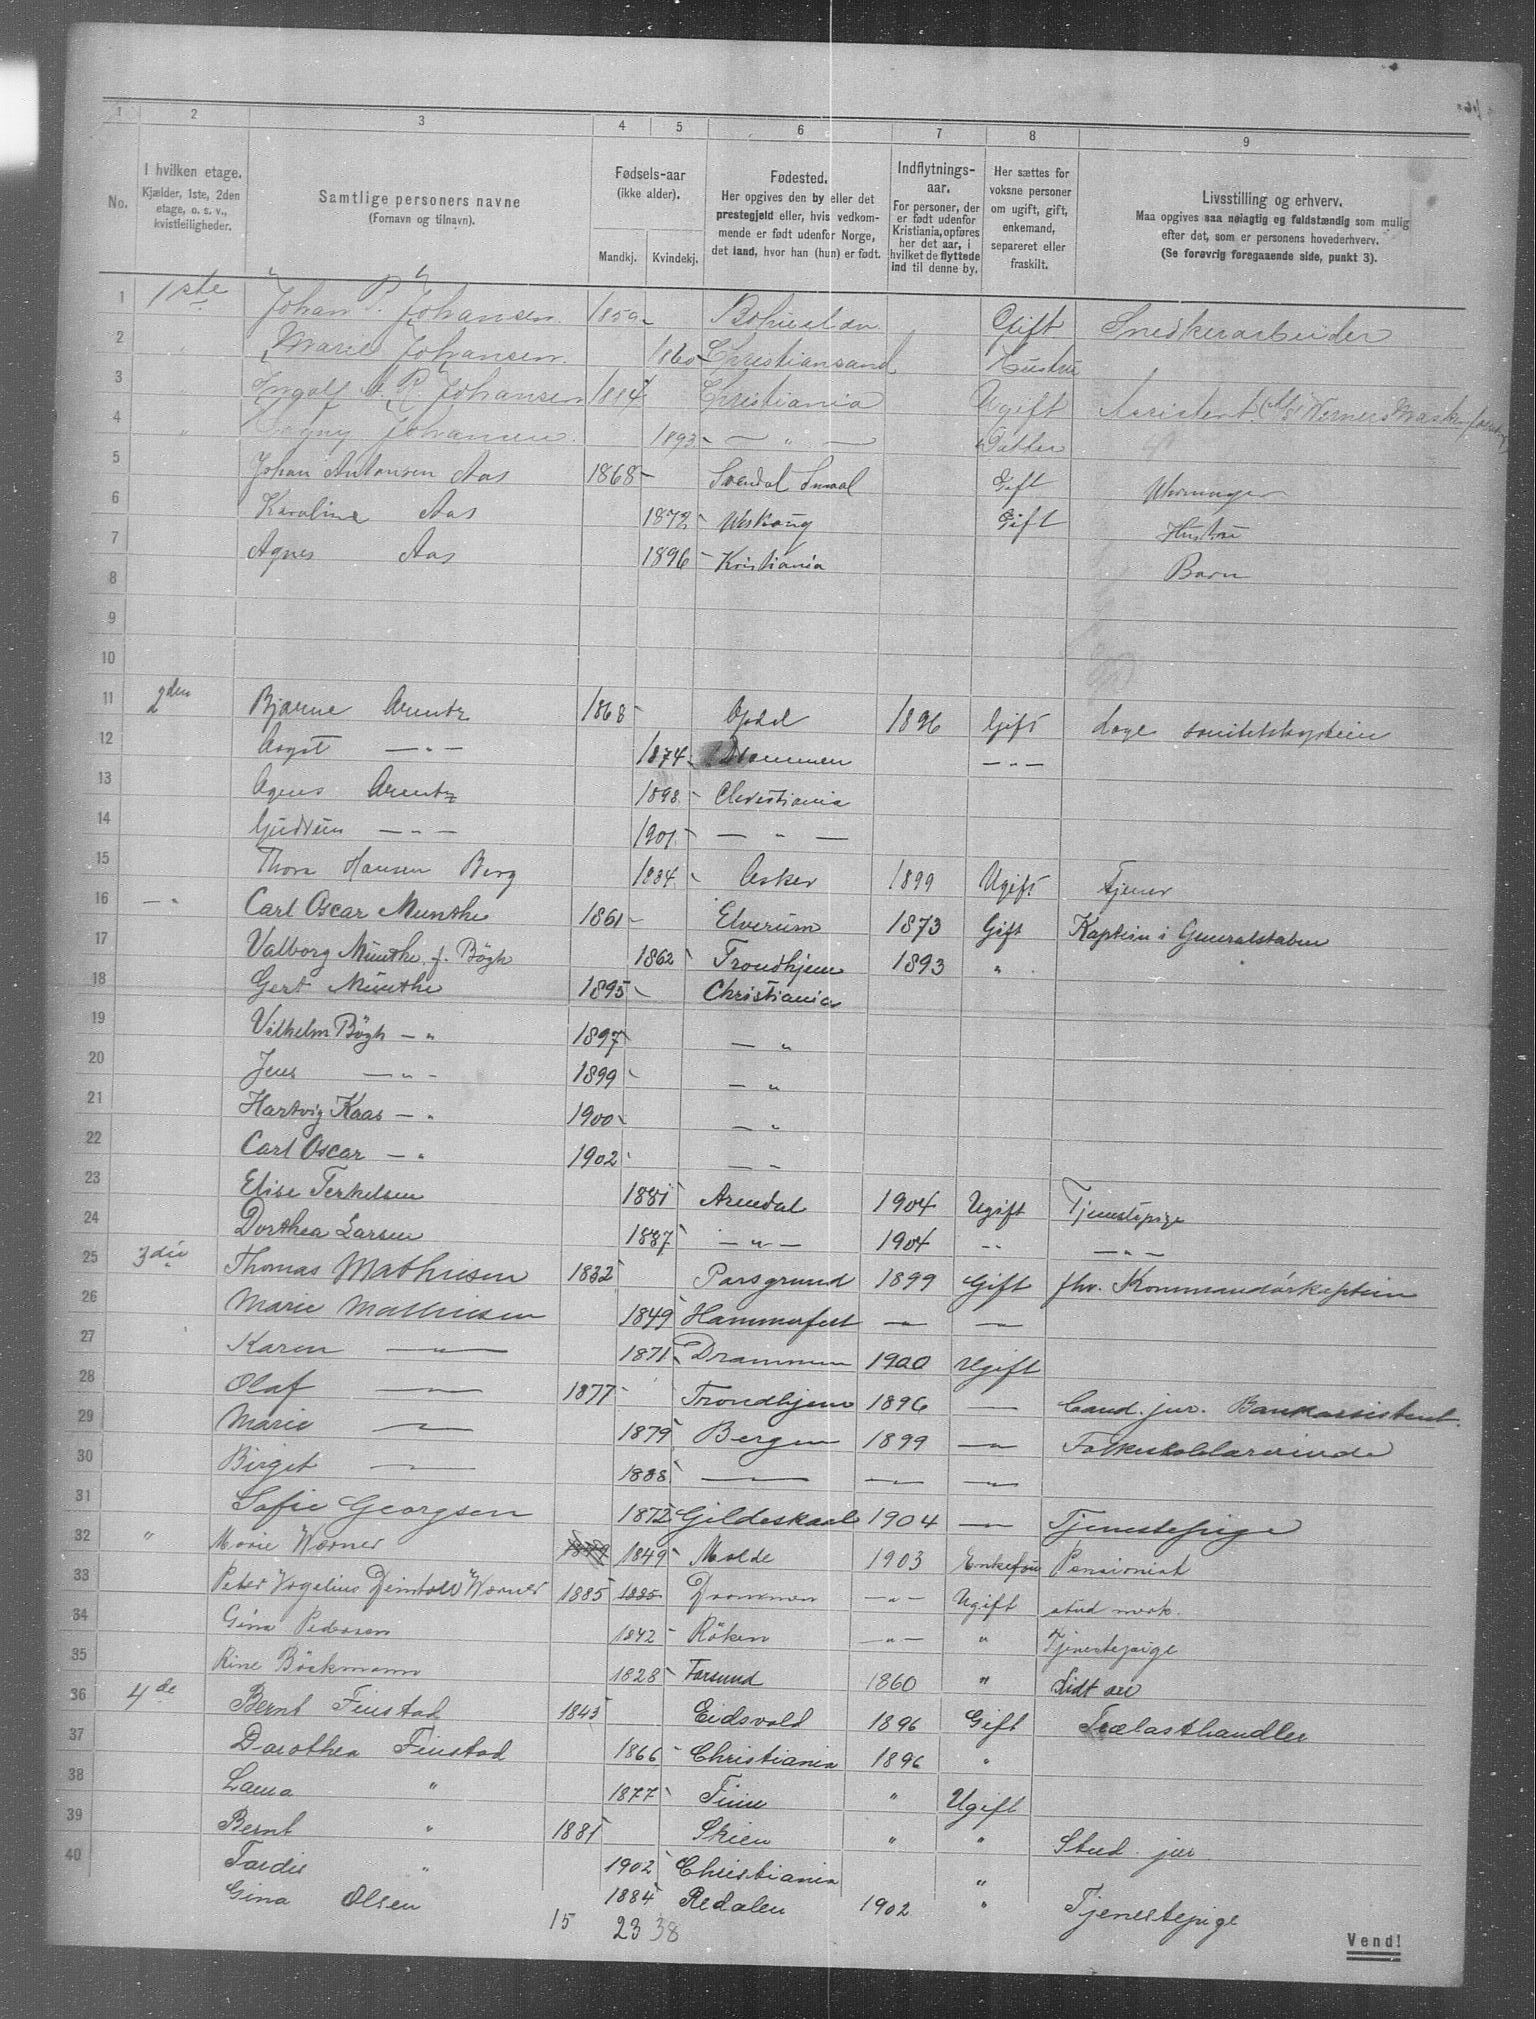 1 2 3 4 5 6 7 8 9
No.
I hvilken etage.
Kjælder, 1ste, 2den
etage, o. s. v.,
kvistleiligheder.
Samtlige personers navne
(Fornavn og tilnavn).
Fødsels-aar
(ikke alder).
Mandkj. Kvindekj.
Fødested.
Her opgives den by eller det
prestegjeld eller, hvis vedkom-
mende er født udenfor Norge,
det land, hvor han (hun) er født.
Indflytnings-
aar.
For personer, der
er født udenfor
Kristiania, opføres
her det aar, i
hvilket de flyttede
ind til denne by.
Her sættes for
voksne personer
om ugift, gift,
enkemand,
separeret eller
fraskilt.
Livsstilling og erhverv.
Maa opgives saa nøiagtig og fuldstændig som mulig
efter det, som er personens hovederhverv.
(Se forøvrig foregaaende side, punkt 3).
1 1ste Johan P. Johansen 1859 Gift Snedkerarbeider
2 " Marie Johansen 1860 Christiansand Hustru
3 " Ingolf R. Johansen 1884 Christiania Ugift Assistent
4 " Dagny Johansen 1893 — " — Datter
5 Johan Antonsen Aas 1868 Gift
6 Karoline Aas 1872 Gift Hustru
7 Agnes Aas 1896 Kristiania Barn
8
9
10
11 2den Bjarne Arentz 1868 Opdal 1896 Gift Læge sanitetskaptein
12 Aagot — " — 1874 Drammen — " —
13 Agnes Arentz 1898 Christiania
14 Gudrun — " — 1901 — " —
15 Thora Hansen Berg 1884 Asker 1899 Ugift Tjener
16 — " Carl Oscar Munthe 1861 Elverum 1873 Gift Kaptein i Generalstaben
17 Valborg Munthe f. Bögh 1862 Trondhjem 1893 "
18 Gert Munthe 1895 Christiania
19 Vilhelm Bögh — " 1897 — "
20 Jens — " — 1899 — "
21 Hartvig Kaas — " 1900 — "
22 Carl Oscar — " 1902 — "
23 Elise Terkelsen 1881 Arendal 1904 Ugift Tjenestepige
24 Dorthea Larsen 1887 — " — 1904 " — " —
25 3die Thomas Mathiesen 1832 Porsgrund 1899 Gift fhv. Kommandörkaptein
26 Marie Mathiesen 1849 Hammerfest — " — — " —
27 Karen — " — 1871 Drammen 1900 Ugift
28 Olaf — " — 1877 Trondhjem 1896 — " — Cand. jur. Bankassistent.
29 Marie — " — 1879 Bergen 1899 — " — Folkeskolelærerinde
30 Birget — " — 1888 — " — — " — — " —
31 Sofie Georgsen 1872 Gildeskaal 1904 — " — Tjenestepige
32 " Marie Wærner 1849 Molde 1903 Enkefru Pensionist
33 Peter Vogelius Wærner 1885 1885 Drammen — " — Ugift stud merk.
34 Gina Pedersen 1842 Röken — " — " Tjenestepige
35 Rine Böckmann 1828 Farsund 1860 " Lidt
36 4de Bernt Finstad 1843 Eidsvold 1896 Gift Trælasthandler
37 Dorothea Finstad 1866 Christiania 1896 "
38 " 1877 " Ugift
39 Bernt " 1881 Skien " " Stud. jur.
40 " 1902 Christiania "
Gina Olsen 1884 Redalen 1902 " Tjenestepige
15 23 38
Vend!